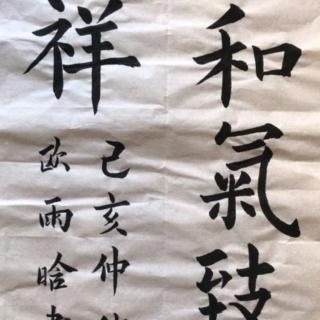 和氣致
祥
己亥仲
欧雨晗